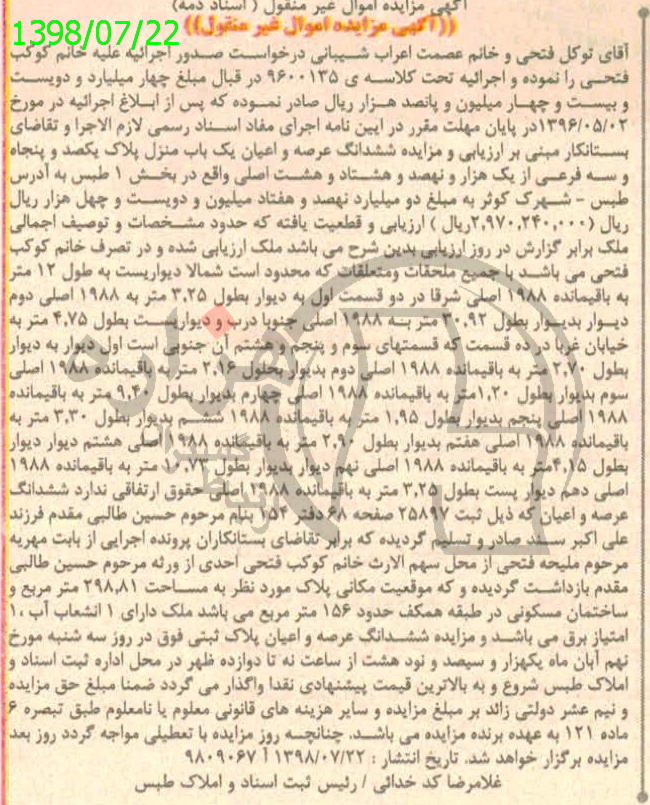 آگهی مزایده اموال غیر منقول ( اسناد ذمه)
((آگهی مزایده اموال غیر منقول))
1398/07/22
آقای توکل فتحی و خانم عصمت اعراب شیبانی درخواست صدور اجرائیه علیه خانم کوکب
فتحی را نموده و اجرائیه تحت کلاسه ی ۹۶۰۰۱۳۵ در قبال مبلغ چهار میلیارد و دویست
و بیست و چهار میلیون و پانصد هزار ریال صادر نموده که پس از ابلاغ اجرائیه در مورخ
۱۳۹۶/۰۵/۰۲در پایان مهلت مقرر در ایین نامه اجرای مفاد اسناد رسمی لازم الاجرا و تقاضای
بستانکار مبنی بر ارزیابی و مزایده ششدانگ عرصه و اعیان یک باب منزل پلاک یکصد و پنجاه
و سه فرعی از یک هزار و نهصد و هشتاد و هشت اصلی واقع در بخش ۱ طبس به آدرس
طبس - شهرک کوثر به مبلغ دو میلیارد نهصد و هفتاد میلیون و دویست و چهل هزار ریال
ریال (۲,۹۷۰,۲۴۰,۰۰۰ریال ) ارزیابی و قطعیت یافته که حدود مشخصات و توصیف اجمالی
ملک برابر گزارش در روز ارزیابی بدین شرح می باشد ملک ارزیابی شده و در تصرف خانم کوکب
فتحی می باشد با جمیع ملحقات ومتعلقات که محدود است شمالا دیواریست به طول ۱۲ متر
به باقیمانده ۱۹۸۸ اصلی شرقا در دو قسمت اول به دیوار بطول ۳,۲۵ متر به ۱۹۸۸ اصلی دوم
دیوار بدیوار بطول ۳۰,۹۲ متر بنه ۱۹۸۸ اصلی جنوبا درب و دیواریست بطول ۴,۷۵ متر به
خیابان غربا در ده قسمت که قسمتهای سوم و پنجم و هشتم آن جنوبی است اول دیوار به دیوار
بطول ۲,۷۰ متر به باقیمانده ۱۹۸۸ اصلی دوم بدیوار بحلول ۲,۱۶ متر به باقیمانده ۱۹۸۸ اصلی
سوم بدیوار بطول ۱,۲۰متر به باقیمانده ۱۹۸۸ اصلی چهارم بدیوار بطول ۹,۴۰ متر به باقیمانده
۱۹۸۸ اصلی پنجم بدیوار بطول ۱,۹۵ متر به باقیمانده ۱۹۸۸ ششم بدیوار بطول ۳,۳۰ متر به
باقیمانده ۱۹۸۸ اصلی هفتم بدیوار بطول ۲,۹۰ متر به باقیمانده ۱۹۸۸ اصلی هشتم دیوار دیوار
بطول ۴,۱۵متر به باقیمانده ۱۹۸۸ اصلی نهم دیوار بدیوار بطول ۱۰,۷۳ متر به باقیمانده ۱۹۸۸
اصلی دهم دیوار پست بطول ۳,۲۵ متر به باقیمانده ۱۹۸۸ اصلی حقوق ارتفاقی ندارد ششدانگ
عرصه و اعیان که ذیل ثبت ۲۵۸۹۷ صفحه ۶۸ دفتر ۱۵۴ بنام مرحوم حسین طالبی مقدم فرزند
علی اکبر سند صادر و تسلیم گردیده که برابر تقاضای بستانکاران پرونده اجرایی از بابت مهریه
مرحوم ملیحه فتحی از محل سهم الارث خانم کوکب فتحی احدی از ورثه مرحوم حسین طالبی
مقدم بازداشت گردیده و که موقعیت مکانی پلاک مورد نظر به مساحت ۲۹۸,۸۱ متر مربع و
ساختمان مسکونی در طبقه همکف حدود ۱۵۶ متر مربع می باشد ملک دارای ۱ انشعاب آب ،۱
امتیاز برق می باشد و مزایده ششدانگ عرصه و اعیان پلاک ثبتی فوق در روز سه شنبه مورخ
نهم آبان ماه یکهزار و سیصد و نود هشت از ساعت نه تا دوازده ظهر در محل اداره ثبت اسناد و
املاک طبس شروع و به بالاترین قیمت پیشنهادی نقدا واگذار می گردد ضمنا مبلغ حق مزایده
و نیم عشر دولتی زائد بر مبلغ مزایده و سایر هزینه های قانونی معلوم یا نامعلوم طبق تبصره ۶
ماده ۱۲۱ به عهده برنده مزایده می باشد. چنانچه روز مزایده با تعطیلی مواجه گردد روز بعد
مزایده برگزار خواهد شد. تاریخ انتشار : ۱۳۹۸/۰۷/۲۲ آ ۹۸۰۹۰۶۷
غلامرضا کد خدائی / رئیس ثبت اسناد و املاک طبس